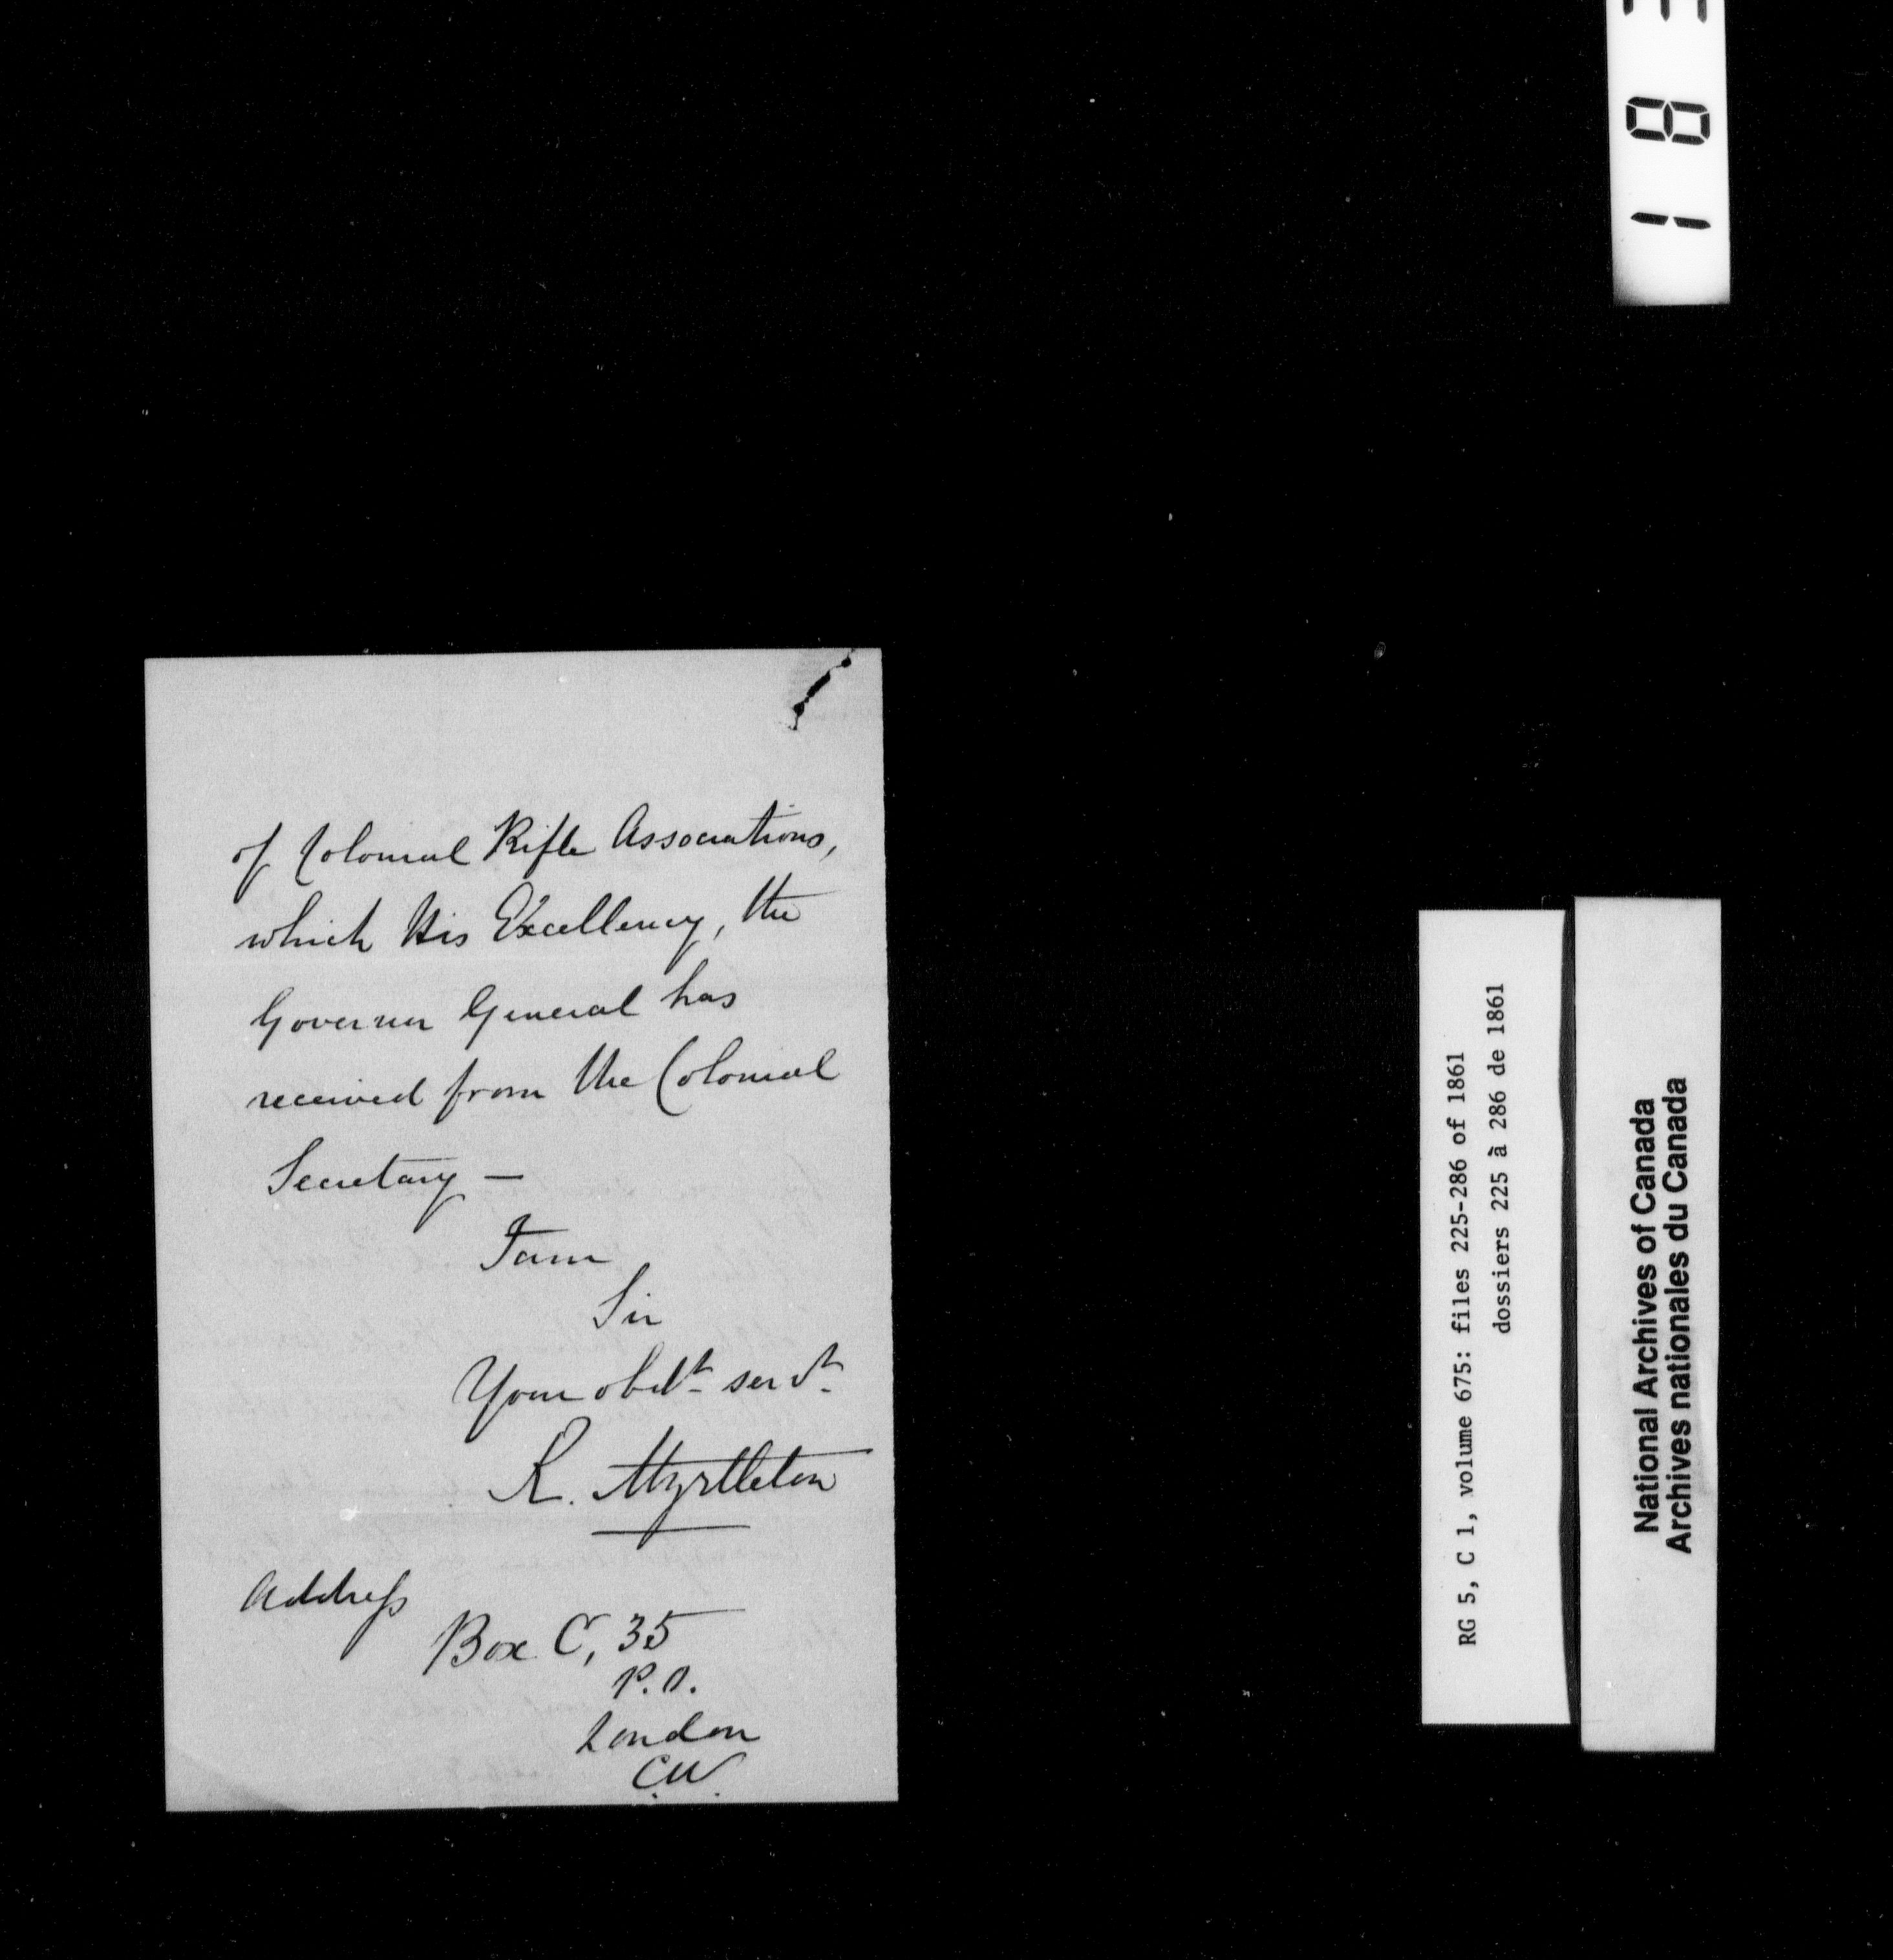 of Colonial Rifle Associations,
which His Excellency, the
Governor General has
received from the Colonial
Secretary —
I am
Sir
Your obdt servt
R. Myrtleton
Address
Box C, 35
P.O.
London
C.W.
RG 5, C 1, volume 675: files 225-286 of 1861
dossiers 225 à 286 de 1861
National Archives of Canada
Archives nationales du Canada
1 8